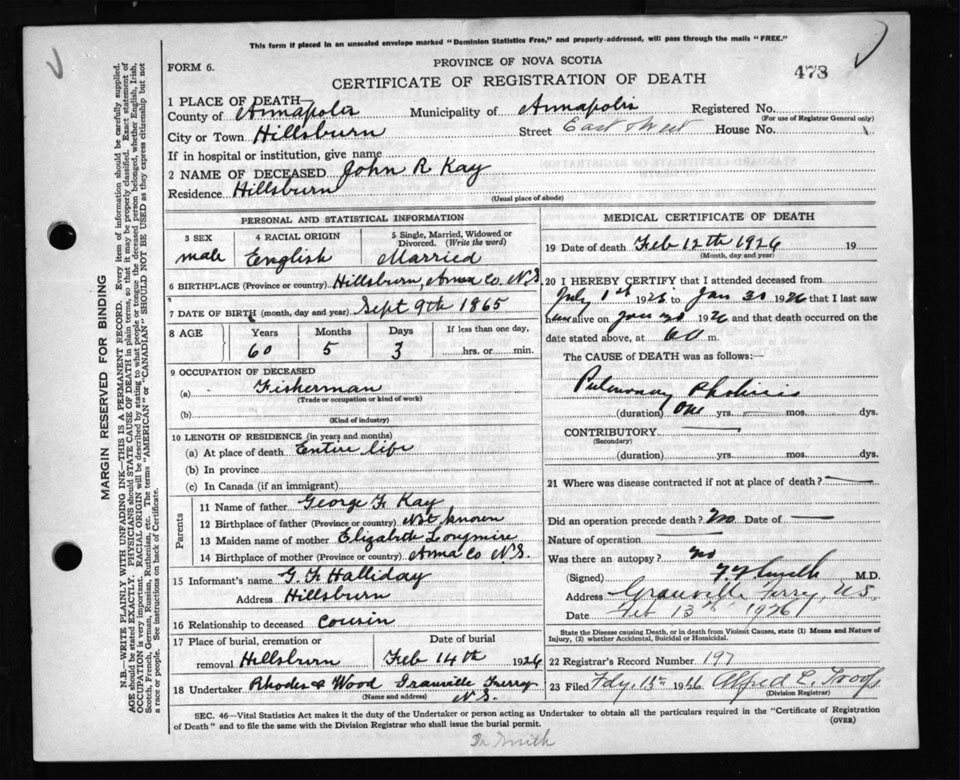 This form if placed in an unsealed envelope marked "Dominion Statistics Free," and properly-addressed, will pass through the mails "FREE."
FORM 6.
PROVINCE OF NOVA SCOTIA
CERTIFICATE OF REGISTRATION OF DEATH
478
1 PLACE OF DEATH—
County of Annapolis Municipality of Annapolis Registered No.
(For use of Registrar General only)
City or Town Hillsburn Street East Street House No.
If in hospital or institution, give name
2 NAME OF DECEASED John R Kay
Residence Hillsburn
(Usual place of abode)
PERSONAL AND STATISTICAL INFORMATION
3 SEX 4 RACIAL ORIGIN 5 Single, Married, Widowed or
Divorced. (Write the word)
male English Married
6 BIRTHPLACE (Province or country) Hillsburn, Anna Co. N.S.
7 DATE OF BIRTH (month, day and year) Sept 9th 1865
8 AGE Years Months Days If less than one day,
60 5 3 hrs. or min.
9 OCCUPATION OF DECEASED
(a) Fisherman
(Trade or occupation or kind of work)
(b)
(Kind of industry)
10 LENGTH OF RESIDENCE (in years and months)
(a) At place of death Entire life
(b) In province
(c) In Canada (if an immigrant)
Parents
11 Name of father George F. Kay
12 Birthplace of father (Province or country) Not known
13 Maiden name of mother Elizabeth Longmire
14 Birthplace of mother (Province or country) Anna Co N.S.
15 Informant's name G. F. Halliday
Address Hillsburn
16 Relationship to deceased Cousin
17 Place of burial, cremation or Date of burial
removal Hillsburn Feb 14th 1926
18 Undertaker Rhodes & Wood Granville Ferry
(Name and address) N.S.
MEDICAL CERTIFICATE OF DEATH
19 Date of death Feb 12th 1926 19
(Month, day and year)
20 I HEREBY CERTIFY that I attended deceased from
July 1st 1925 to Jan 30 1926 that I last saw
alive on Jan 30 1926 and that death occurred on the
date stated above, at m.
The CAUSE of DEATH was as follows:—
Pulmonary Phthisis
(duration) One yrs. mos. dys.
CONTRIBUTORY
(Secondary)
(duration) yrs. mos. dys.
21 Where was disease contracted if not at place of death?
Did an operation precede death? No Date of
Nature of operation
Was there an autopsy? no
(Signed) Smith M.D.
Address Granville Ferry, N.S.
Date Feb 13th 1926
State the Disease causing Death, or in death from Violent Causes, state (1) Means and Nature of
Injury, (2) whether Accidental, Suicidal or Homicidal.
22 Registrar's Record Number 197
23 Filed Fdy. 15th 1926 Alfred L. Troop
(Division Registrar)
SEC. 46—Vital Statistics Act makes it the duty of the Undertaker or person acting as Undertaker to obtain all the particulars required in the "Certificate of Registration
of Death" and to file the same with the Division Registrar who shall issue the burial permit. (OVER)
Dr Smith
MARGIN RESERVED FOR BINDING
N.B.—WRITE PLAINLY WITH UNFADING INK—THIS IS A PERMANENT RECORD. Every item of information should be carefully supplied.
AGE should be stated EXACTLY. PHYSICIANS should STATE CAUSE OF DEATH in plain terms, so that it may be properly classified. Exact statement of
OCCUPATION is very important. RACIAL ORIGIN will be described by stating to what people or tongue the deceased person belonged, whether English, Irish,
Scotch, French, German, Russian, Ruthenian, etc. The terms "AMERICAN" or "CANADIAN" SHOULD NOT BE USED as they express citizenship but not
a race or people. See instructions on back of Certificate.